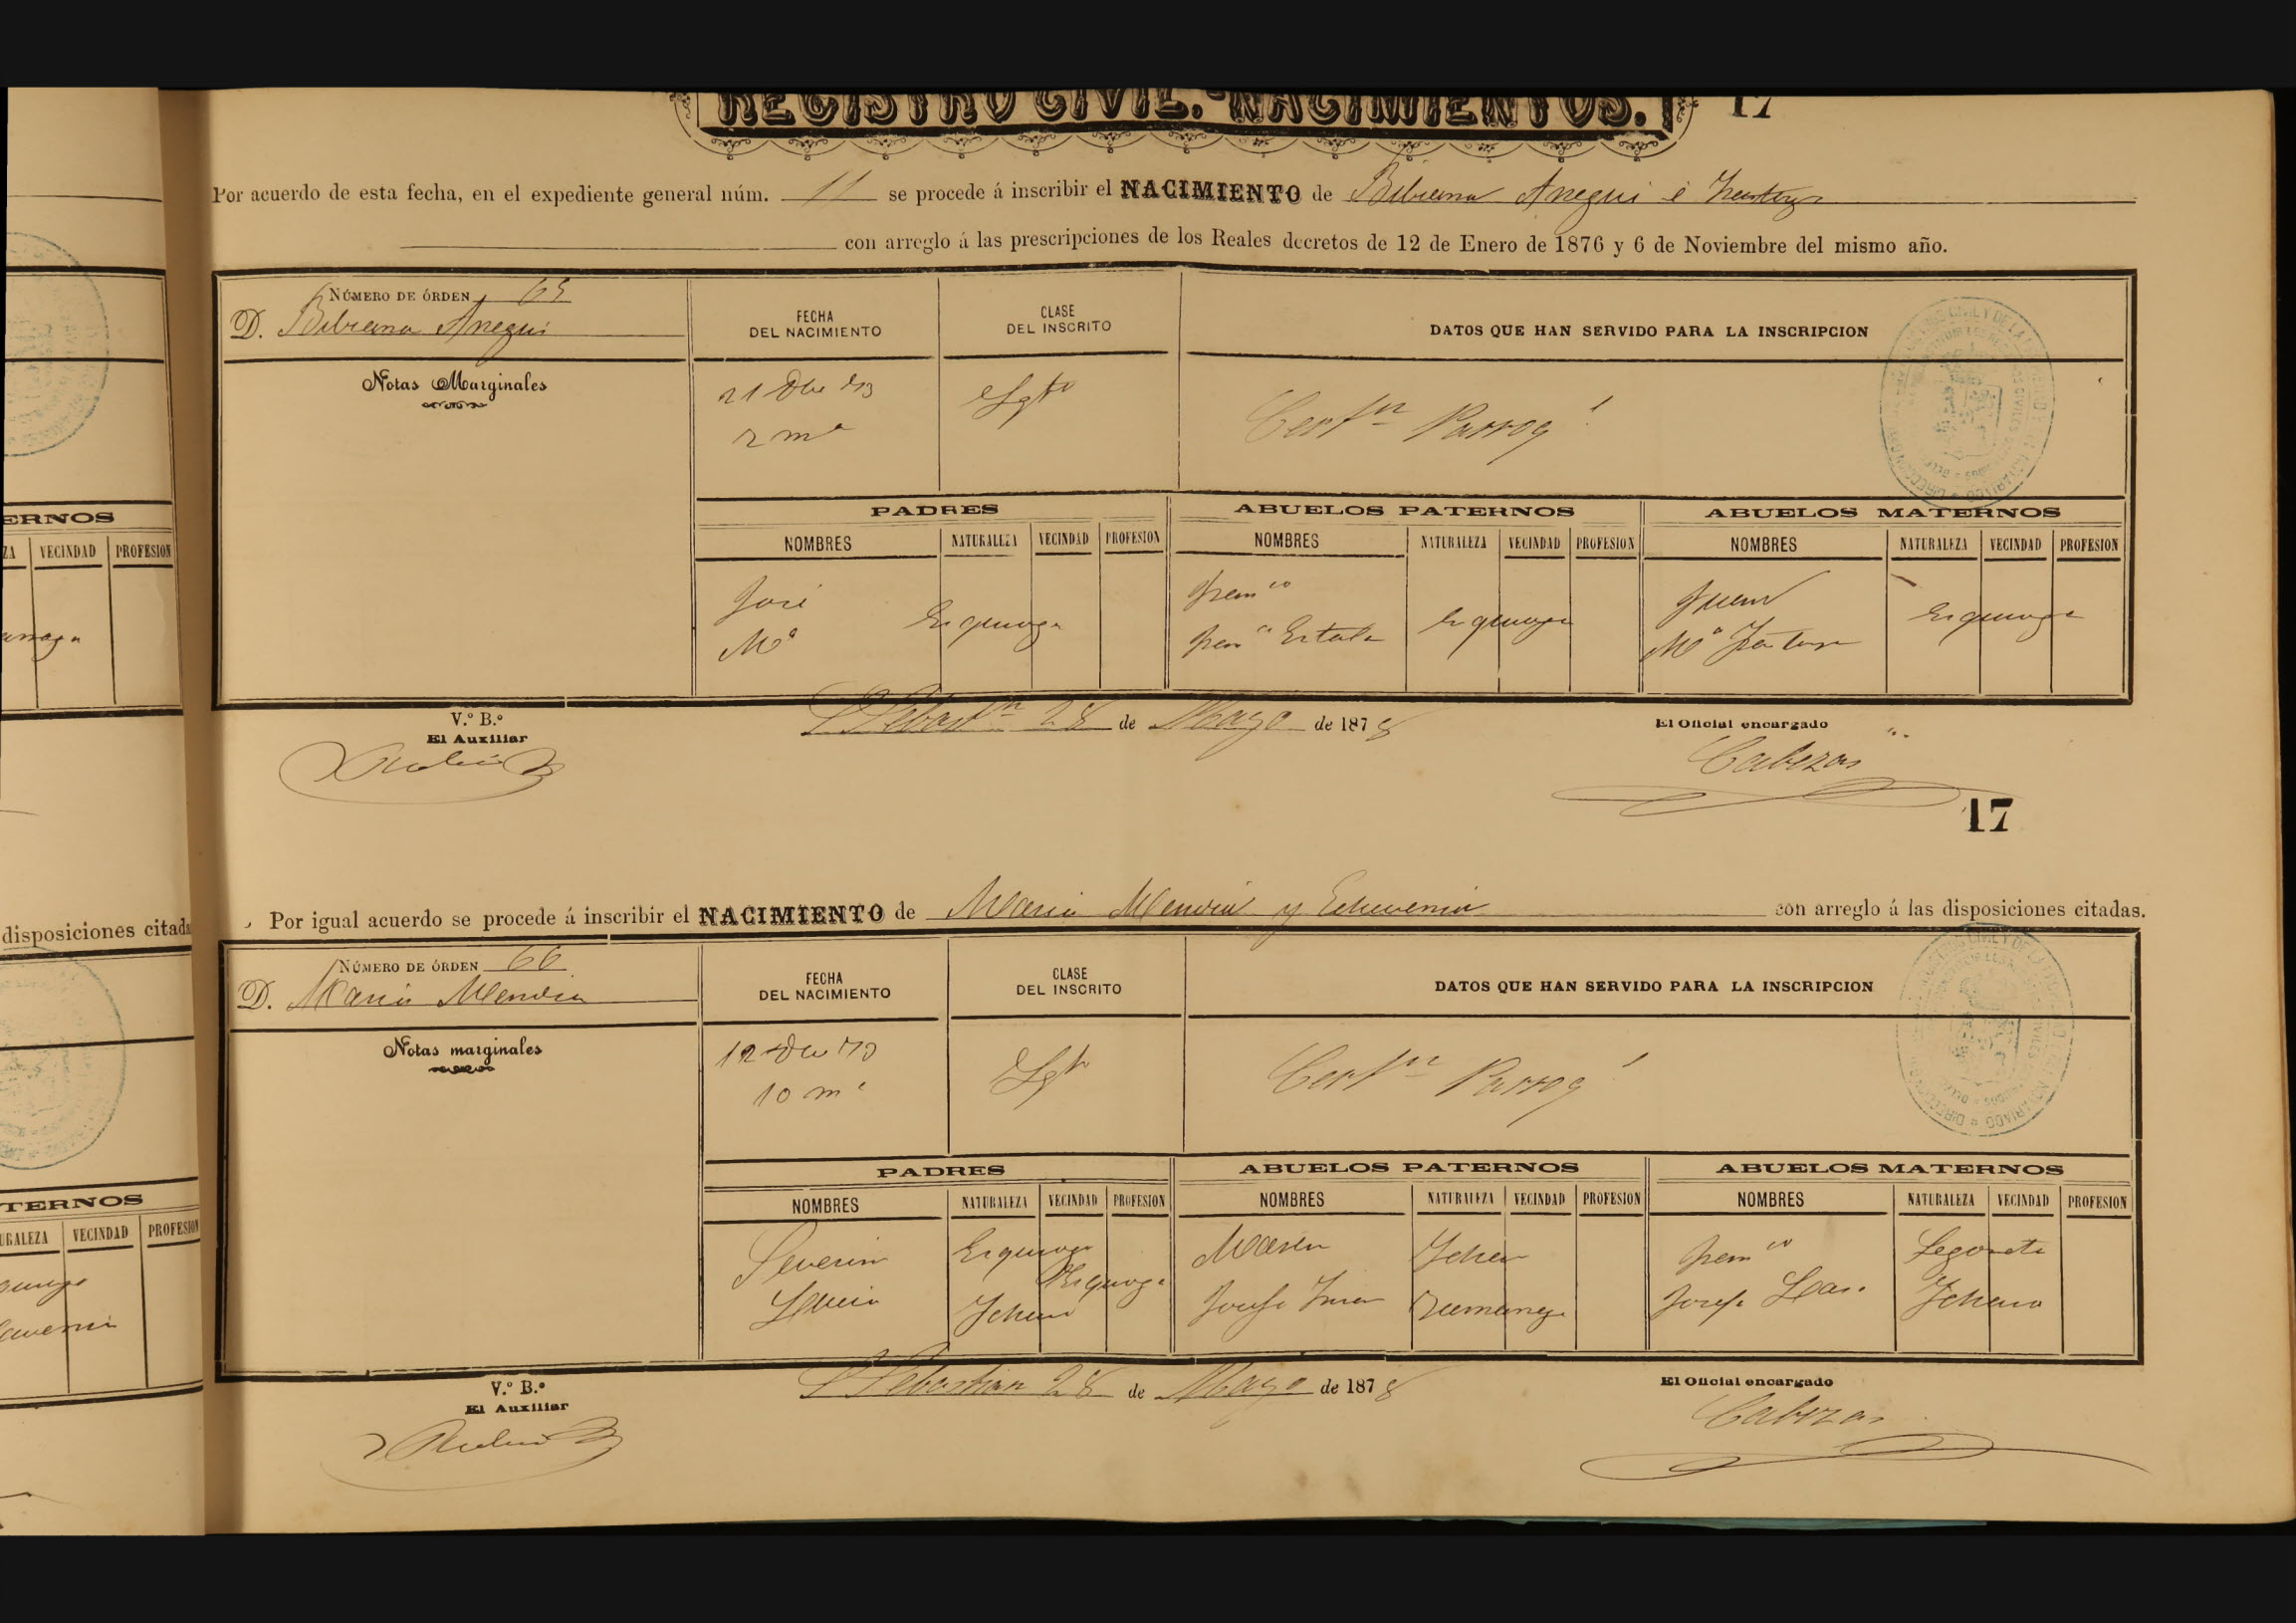 REGISTRO CIVIL.-NACIMIENTOS. 17
Por acuerdo de esta fecha, en el expediente general núm. 11 se procede á inscribir el NACIMIENTO de Bibiana Aregui é
con arreglo á las prescripciones de los Reales decretos de 12 de Enero de 1876 y 6 de Noviembre del mismo año.
NÚMERO DE ÓRDEN 65
D. Bibiana Aregui
FECHA DEL NACIMIENTO
CLASE DEL INSCRITO
DATOS QUE HAN SERVIDO PARA LA INSCRIPCION
Notas Marginales
21 Dbe 73
2 mª
Lgto
Certfn Parroql
PADRES
ABUELOS PATERNOS
ABUELOS MATERNOS
NOMBRES NATURALEZA VECINDAD PROFESION NOMBRES NATURALEZA VECINDAD PROFESION NOMBRES NATURALEZA VECINDAD PROFESION
José
Mª
Ezquioga
Franco
Franca
Ezquioga
Juan
Mª
Ezquioga
S Sebastn 28 de Mayo de 1878
V.º B.º
El Auxiliar
El Oficial encargado
Cabezas
17
Por igual acuerdo se procede á inscribir el NACIMIENTO de Maria Mendia y Echeverria con arreglo á las disposiciones citadas.
NÚMERO DE ÓRDEN 66
D. Maria Mendia
FECHA DEL NACIMIENTO
CLASE DEL INSCRITO
DATOS QUE HAN SERVIDO PARA LA INSCRIPCION
Notas marginales
12 Dbe 73
10 mª
Lgto
Certfn Parroql
PADRES
ABUELOS PATERNOS
ABUELOS MATERNOS
NOMBRES NATURALEZA VECINDAD PROFESION NOMBRES NATURALEZA VECINDAD PROFESION NOMBRES NATURALEZA VECINDAD PROFESION
Severin Ezquioga
Ezquioga
Lucia Ichaso
Martin Ichaso
Josefa Zumarraga
Franco Legorreta
Josefa Ichaso
S Sebastian 28 de Mayo de 1878
V.º B.º
El Auxiliar
El Oficial encargado
Cabezas
ERNOS
VECINDAD PROFESION
disposiciones citada
TERNOS
URALEZA VECINDAD PROFESION